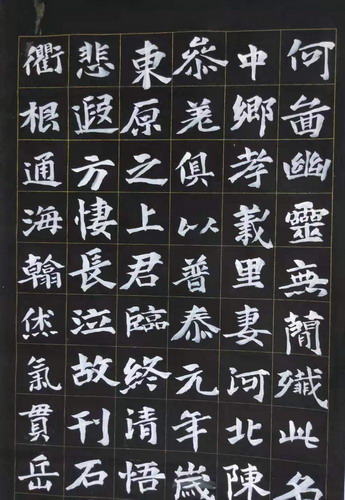 何啚幽靈無蕳殲此名
中鄉孝義里妻河北陳
叅差俱以普泰元年歲
東原之上君臨終清悟
悲遐方悽長泣故刊石
衢根通海翰烋氣貫岳